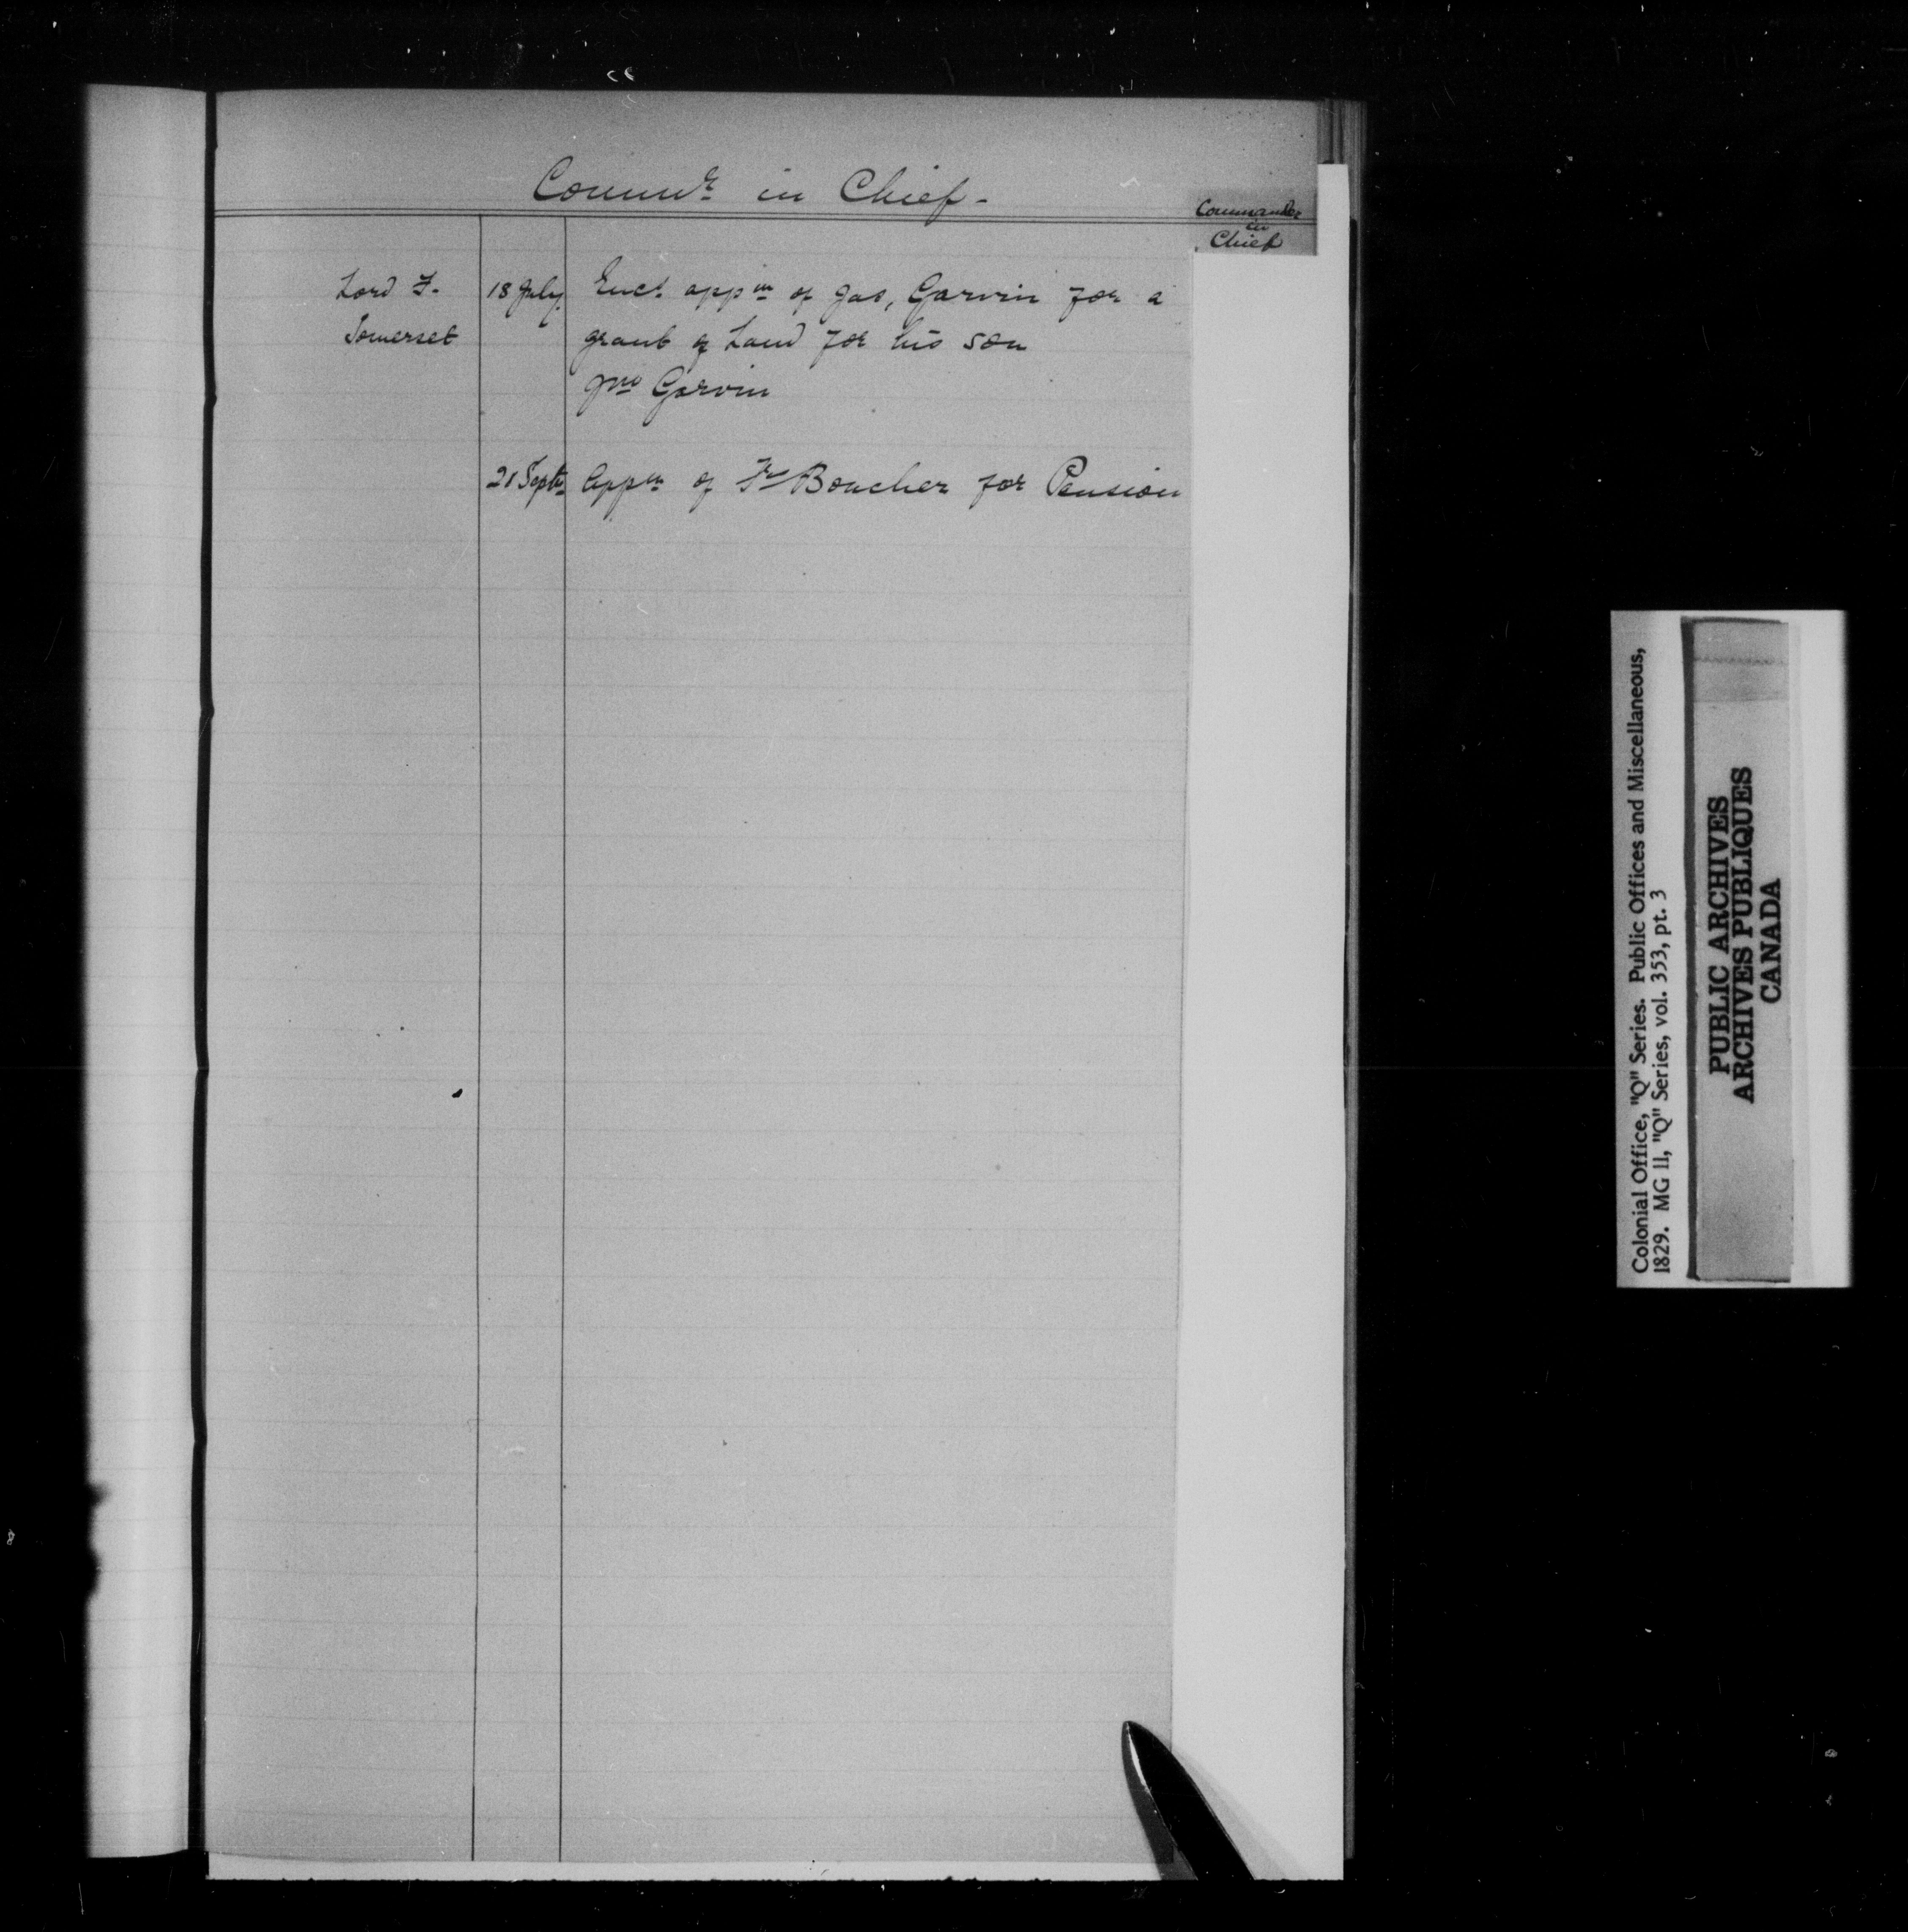 Commr in Chief -
Commander
in
Chief
Lord F. 18 July. Encl. appn of Jas, Garvin for a
Somerset grant of Land for his son
Jno Garvin
21 Septr Appn of Fr Boucher for Pension
Colonial Office, "Q" Series. Public Offices and Miscellaneous,
1829. MG 11, "Q" Series, vol. 353, pt. 3
PUBLIC ARCHIVES
ARCHIVES PUBLIQUES
CANADA